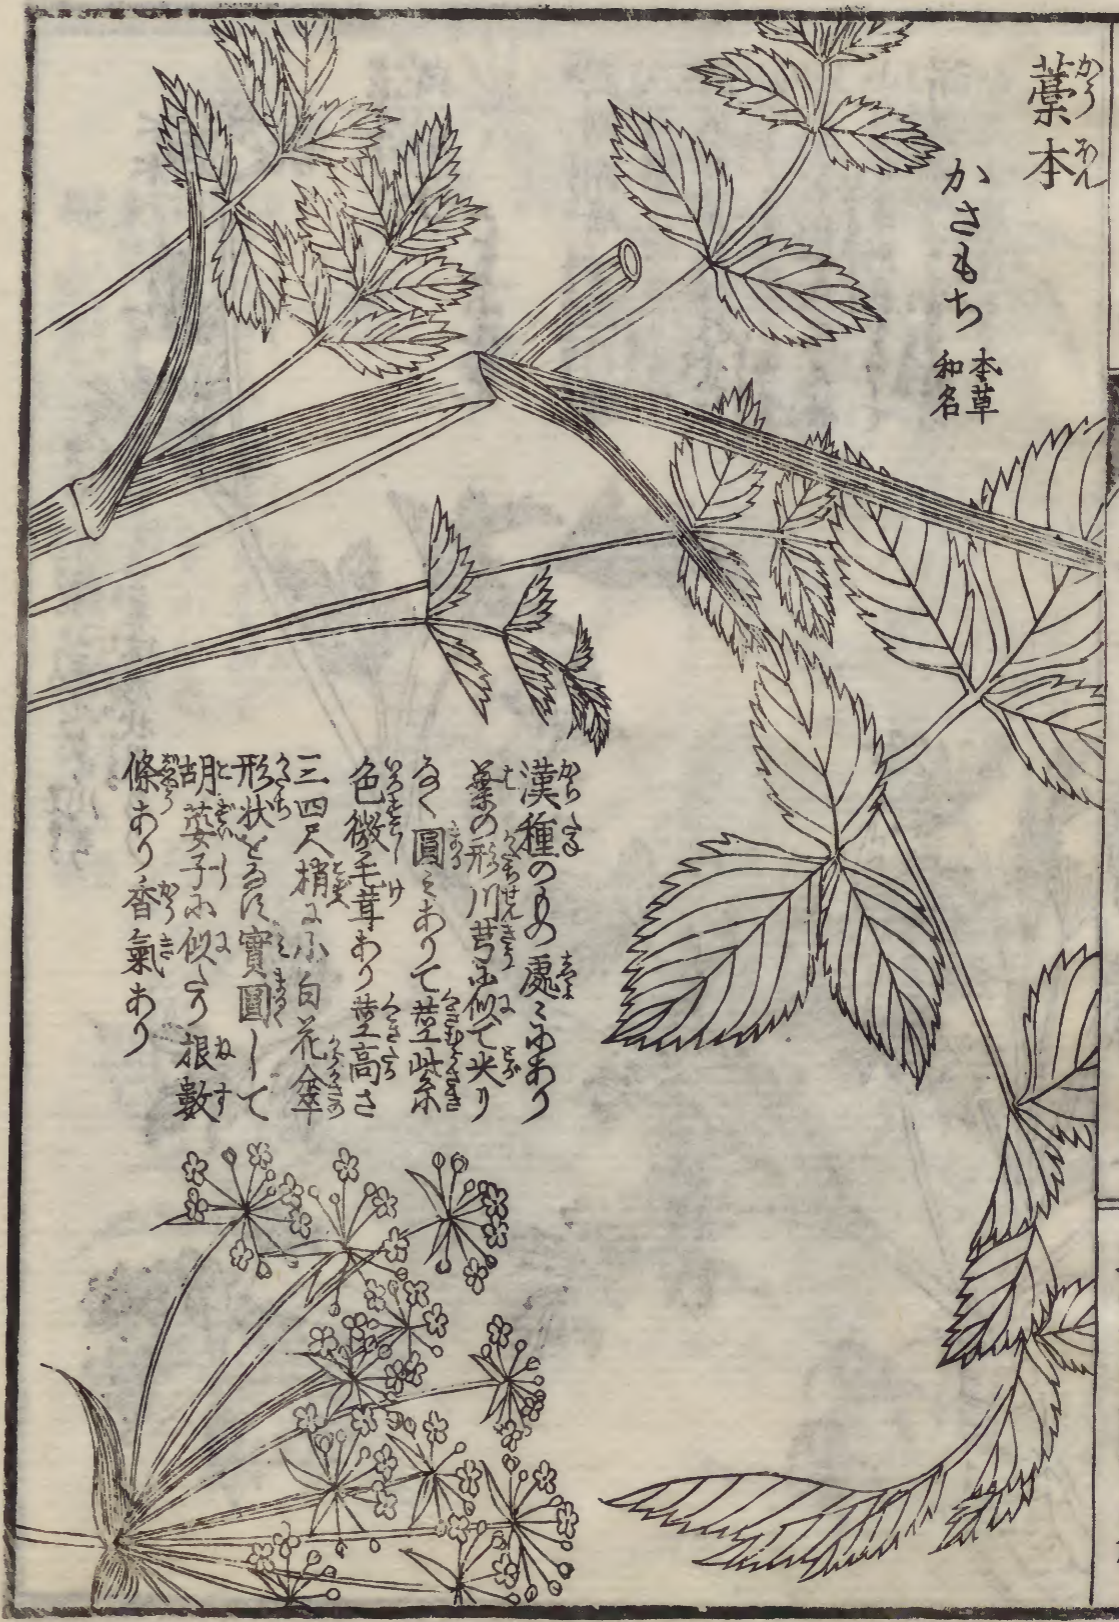 藁本
かさもち
本草
和名
漢種のもの處々にあり
葉の形川芎に似て尖り
なく圓みありて莖紫
色微毛茸あり莖高さ
三四尺梢に小白花傘
形状をなす實圓して
胡荽子に似たり根數
條あり香氣あり